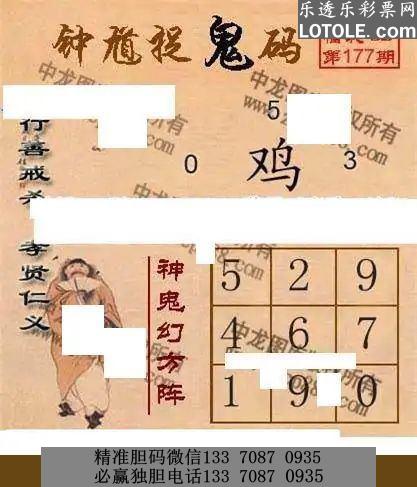 乐透乐彩票网
LOTOLE.COM
钟馗捉鬼码
第177期
行善戒杀
孝贤仁义
5
0 鸡 3
神鬼幻方阵
5 2 9
4 6 7
1 9 0
精准胆码微信133 7087 0935
必赢独胆电话133 7087 0935